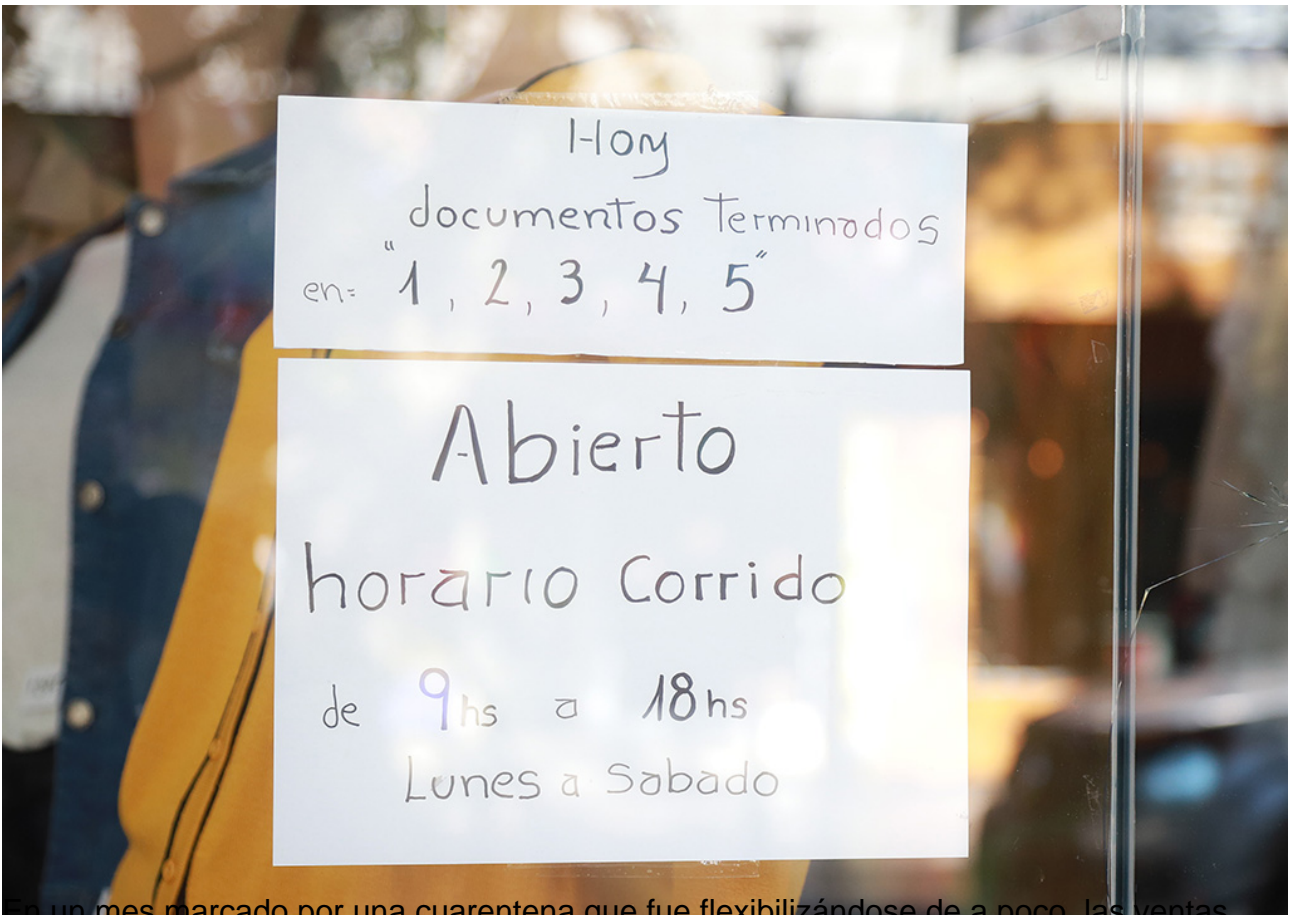 Hoy
documentos Terminados
en= "1, 2, 3, 4, 5"
Abierto
horario Corrido
de 9hs a 18hs
Lunes a Sabado
En un mes marcado por una cuarentena que fue flexibilizándose de a poco, las ventas